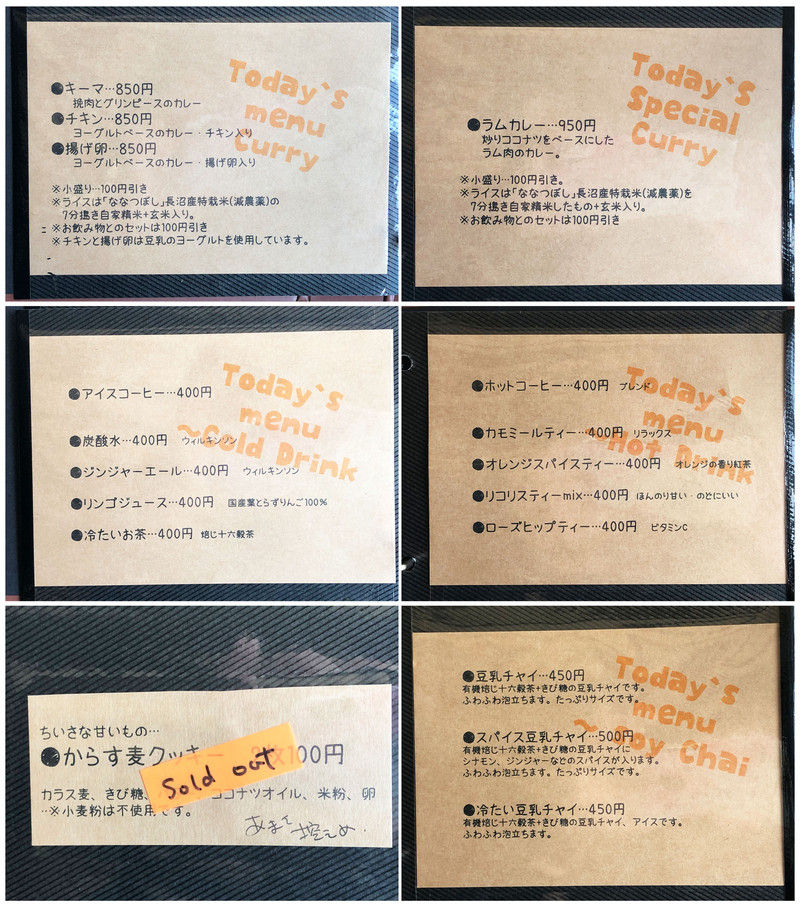 Today`s
menu
Curry
●キーマ…850円
挽肉とグリンピースのカレー
●チキン…850円
ヨーグルトベースのカレー・チキン入り
●揚げ卵…850円
ヨーグルトベースのカレー・揚げ卵入り
※小盛り…100円引き
※ライスは「ななつぼし」長沼産特栽米(減農薬)の
7分搗き自家精米+玄米入り。
※お飲み物とのセットは100円引き
※チキンと揚げ卵は豆乳のヨーグルトを使用しています。
Today`s
Special
Curry
●ラムカレー…950円
炒りココナツをベースにした
ラム肉のカレー。
※小盛り…100円引き。
※ライスは「ななつぼし」長沼産特栽米(減農薬)を
7分搗き自家精米したもの+玄米入り。
※お飲み物とのセットは100円引き
Today`s
menu
~Cold Drink
●アイスコーヒー…400円
●炭酸水…400円 ウィルキンソン
●ジンジャーエール…400円 ウィルキンソン
●リンゴジュース…400円 国産葉とらずりんご100%
●冷たいお茶…400円 焙じ十六穀茶
Today`s
menu
~Hot Drink
●ホットコーヒー…400円 ブレンド
●カモミールティー…400円 リラックス
●オレンジスパイスティー…400円 オレンジの香り紅茶
●リコリスティーmix…400円 ほんのり甘い・のどにいい
●ローズヒップティー…400円 ビタミンC
ちいさな甘いもの…
●からす麦クッキー 100円
Sold out
カラス麦、きび糖、 ココナツオイル、米粉、卵
…※小麦粉は不使用です。
あまさ
控えめ.
Today`s
menu
~Soy Chai
●豆乳チャイ…450円
有機焙じ十六穀茶+きび糖の豆乳チャイです。
ふわふわ泡立ちます。たっぷりサイズです。
●スパイス豆乳チャイ…500円
有機焙じ十六穀茶+きび糖の豆乳チャイに
シナモン、ジンジャーなどのスパイスが入ります。
ふわふわ泡立ちます。たっぷりサイズです。
●冷たい豆乳チャイ…450円
有機焙じ十六穀茶+きび糖の豆乳チャイ、アイスです。
ふわふわ泡立ちます。